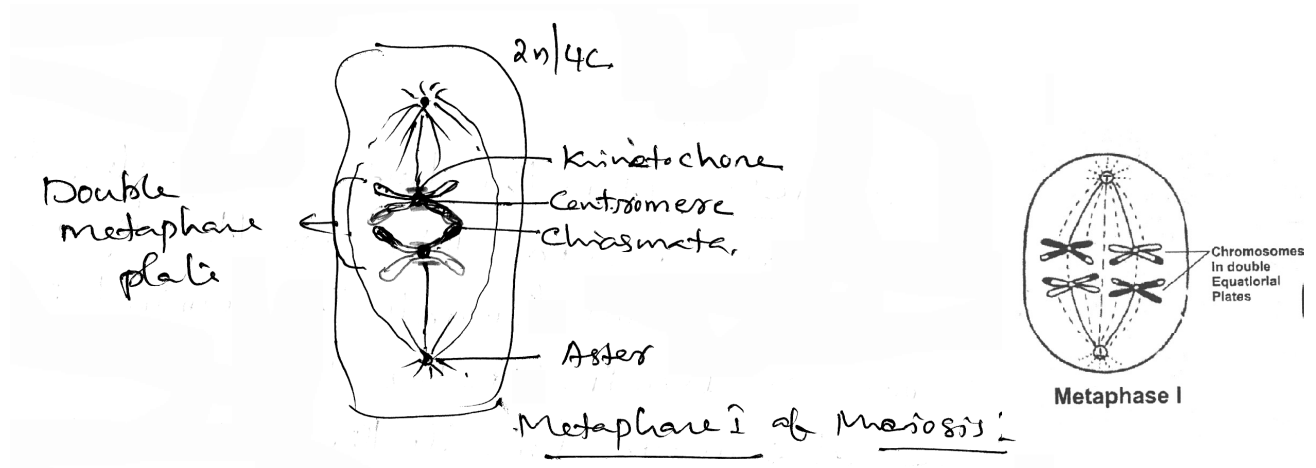 2n/4C
Kinetochore
Double
metaphase
plate
Centromere
Chiasmata.
Aster
Metaphase I of Meiosis:
Chromosomes
In double
Equatiorial
Plates
Metaphase I